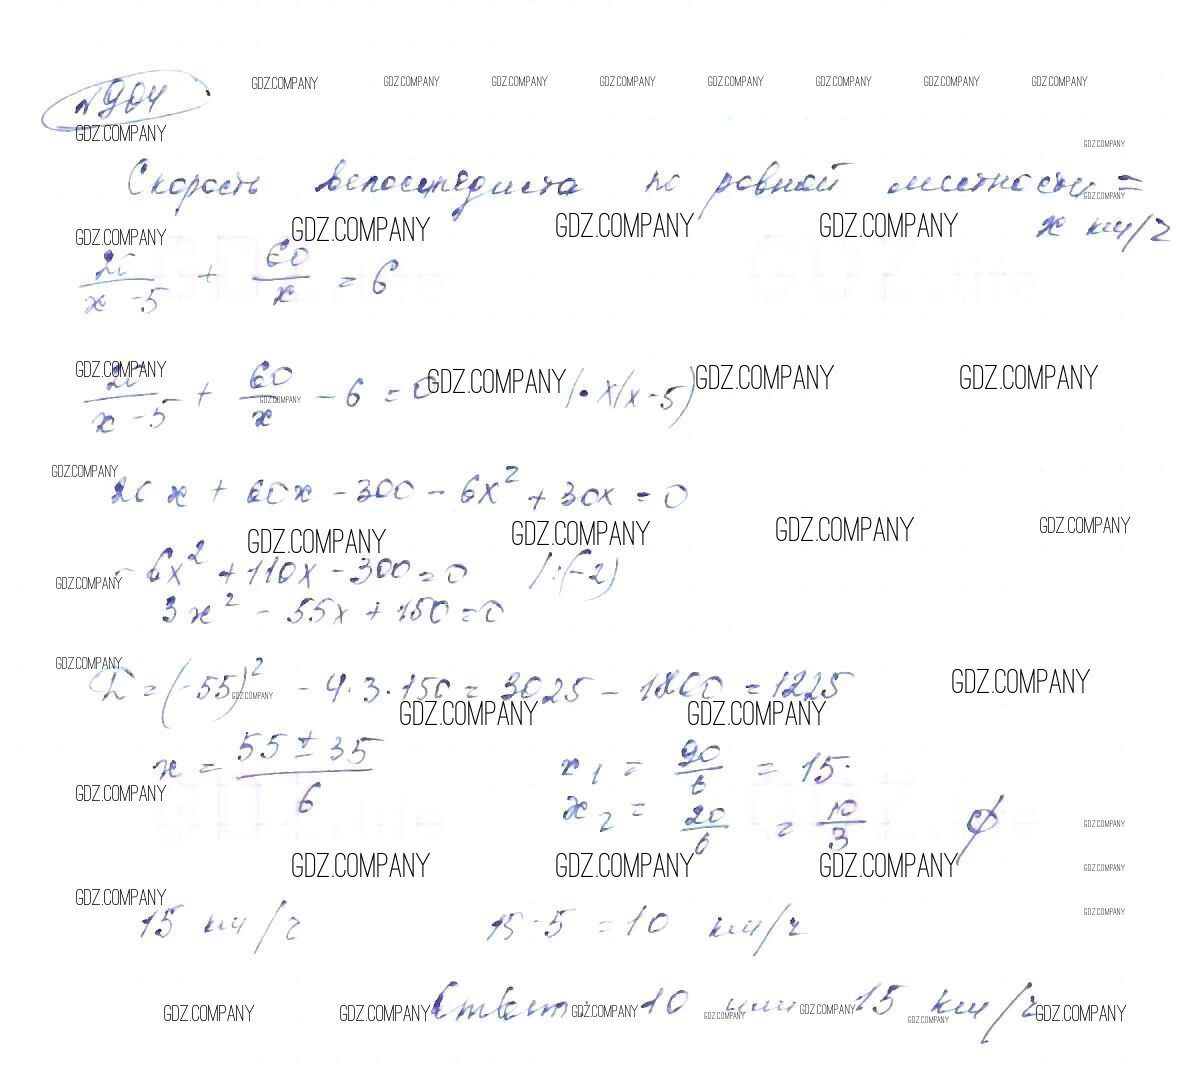 №904 GDZ.COMPANY GDZ.COMPANY GDZ.COMPANY GDZ.COMPANY GDZ.COMPANY GDZ.COMPANY GDZ.COMPANY GDZ.COMPANY
GDZ.COMPANY GDZ.COMPANY
Скорость велосипедиста по ровной местности =
GDZ.COMPANY
GDZ.COMPANY GDZ.COMPANY GDZ.COMPANY GDZ.COMPANY
x км/ч
20/(x - 5) + 60/x = 6
GDZ.COMPANY GDZ.COMPANY GDZ.COMPANY GDZ.COMPANY
20/(x - 5) + 60/x - 6 = 0 | • x(x - 5)
GDZ.COMPANY
GDZ.COMPANY
20x + 60x - 300 - 6x² + 30x = 0
GDZ.COMPANY GDZ.COMPANY GDZ.COMPANY GDZ.COMPANY
- 6x² + 110x - 300 = 0 /:(-2)
GDZ.COMPANY
3x² - 55x + 150 = 0
GDZ.COMPANY
Д = (-55)² - 4·3·150 = 3025 - 1800 = 1225
GDZ.COMPANY GDZ.COMPANY
GDZ.COMPANY GDZ.COMPANY
x = (55 ± 35)/6 x₁ = 90/6 = 15.
GDZ.COMPANY
x₂ = 20/6 = 10/3 ∅
GDZ.COMPANY
GDZ.COMPANY GDZ.COMPANY GDZ.COMPANY GDZ.COMPANY
GDZ.COMPANY GDZ.COMPANY
15 км/ч 15-5 = 10 км/ч
Ответ: 10 или 15 км/ч
GDZ.COMPANY GDZ.COMPANY GDZ.COMPANY GDZ.COMPANY GDZ.COMPANY GDZ.COMPANY GDZ.COMPANY